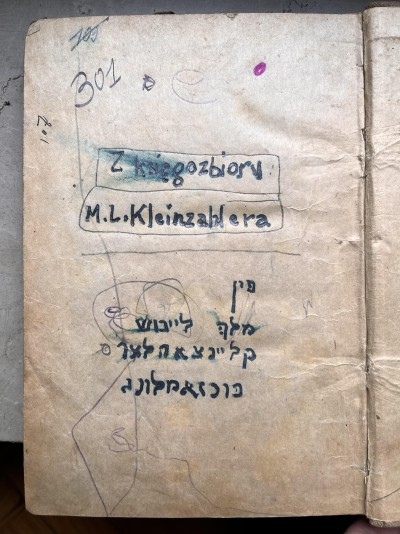 301
Z księgozbioru
M.L. Kleinzahlera
פון
מלך לייבוש
קליינצאהלער
בוכזאמלונג